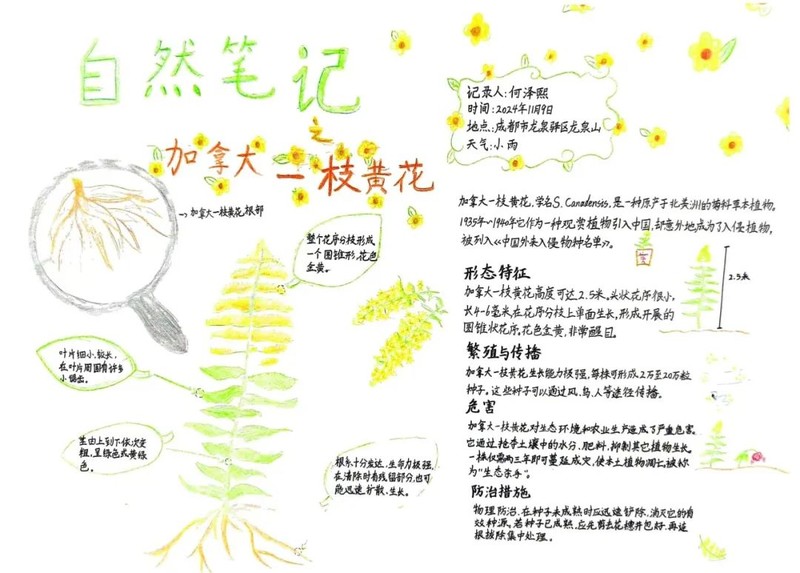 自然笔记
之
加拿大一枝黄花
记录人:何泽熙
时间:2024年11月9日
地点:成都市龙泉驿区龙泉山
天气:小雨
→加拿大一枝黄花根部
整个花序分枝形成
一个圆锥形,花色
金黄。
叶片细小,较长,
在叶片周围有许多
小锯齿。
茎由上到下依次变
粗,呈绿色或黄绿
色。
根系十分发达,生命力极强,
在清除时有残留部分,也可
能迅速扩散、生长。
加拿大一枝黄花,学名S. Canadensis,是一种原产于北美洲的菊科草本植物,
1935年~1940年它作为一种观赏植物引入中国,却意外地成为了入侵植物,
被列入《中国外来入侵物种名单》。
形态特征
加拿大一枝黄花高度可达2.5米。头状花序很小,
长4-6毫米,在花序分枝上单面生长,形成开展的
圆锥状花序。花色金黄,非常醒目。
2.5米
繁殖与传播
加拿大一枝黄花,生长能力极强,每株可形成2万至20万粒
种子。这些种子可以通过风、鸟、人等途径传播。
危害
加拿大一枝黄花对生态环境和农业生产造成了严重危害。
它通过抢夺土壤中的水分、肥料,抑制其它植物生长。
一株仅需两三年即可蔓延成灾,使本土植物凋亡,被称
为“生态杀手”。
防治措施
物理防治,在种子未成熟时应迅速铲除,消灭它的有
效种源。若种子已成熟,应先剪去花穗并包好,再连
根拔除集中处理。